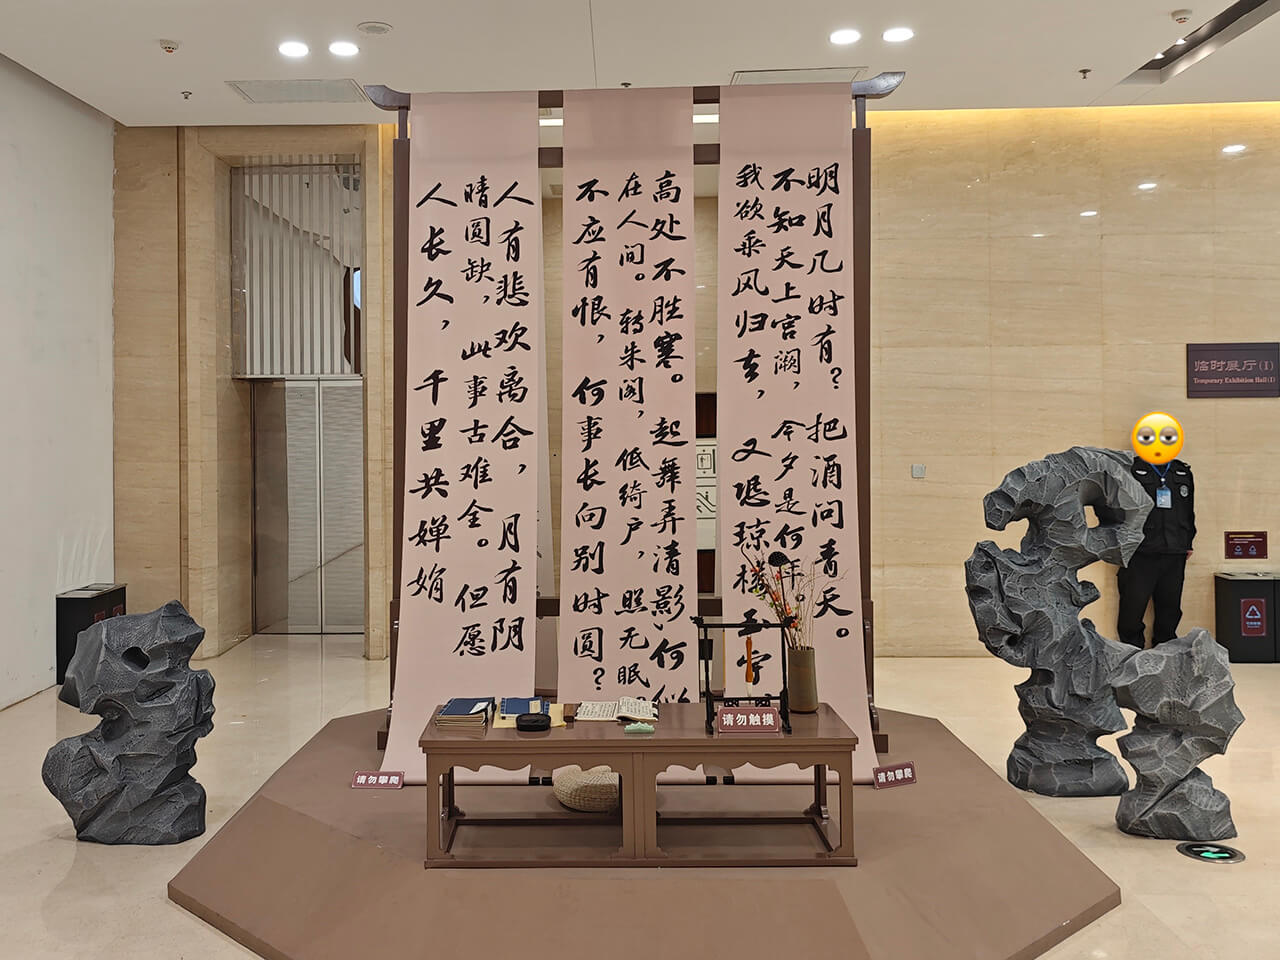 明月几时有？把酒问青天。
不知天上宫阙，今夕是何年。
我欲乘风归去，又恐琼楼玉宇
高处不胜寒。起舞弄清影，何似
在人间。转朱阁，低绮户，照无眠
不应有恨，何事长向别时圆？
人有悲欢离合，月有阴
晴圆缺，此事古难全。但愿
人长久，千里共婵娟
临时展厅(I)
Temporary Exhibition Hall(I)
请勿触摸
请勿攀爬
请勿攀爬